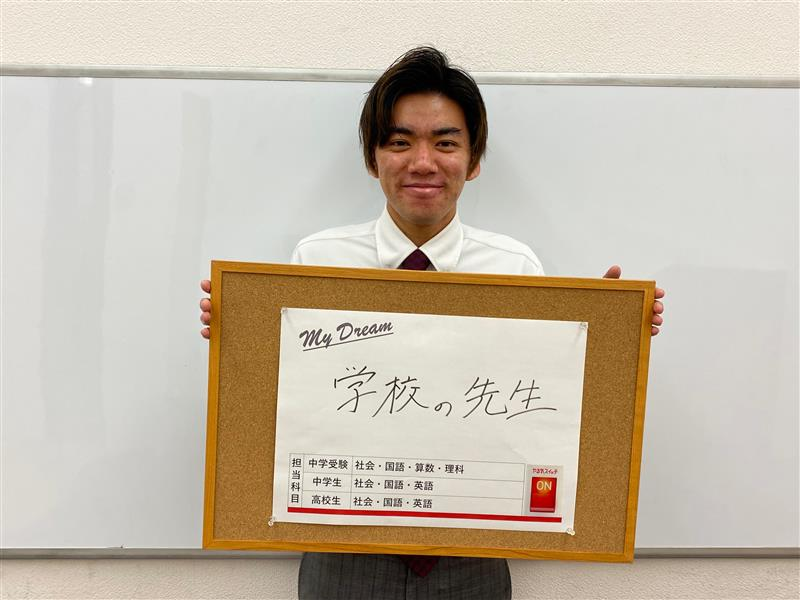 My Dream
学校の先生
担当科目
中学受験 社会・国語・算数・理科
中学生 社会・国語・英語
高校生 社会・国語・英語
やる気スイッチ
ON